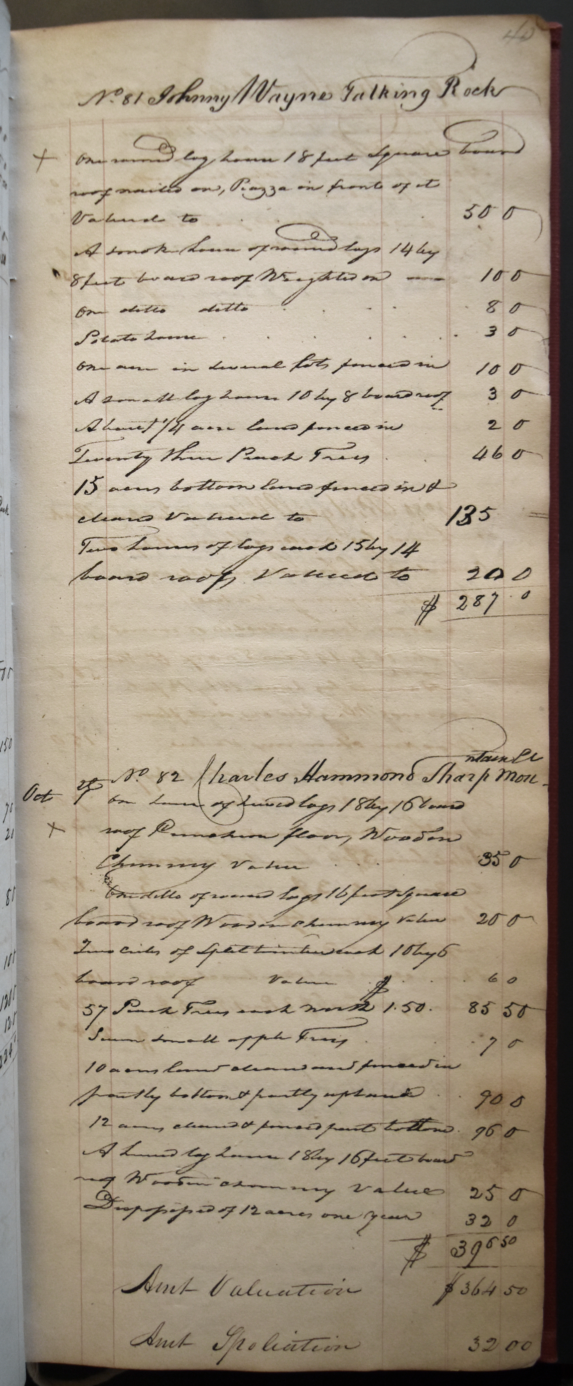 40
No 81 Johnny Wayne Talking Rock
+ One round log house 18 feet Square board
roof nailed on, Piazza in front of it
Valued to 50 0
A smoke house of round logs 14 by
8 feet board roof Weighted on 10 0
One ditto ditto 8 0
Potato house 3 0
One acre in several lots fenced in 10 0
A small log house 10 by 8 board roof 3 0
About 1/4 acre land fenced in 2 0
Twenty three Peach Trees 46 0
15 acres bottom land fenced in &
cleared Valued to 135
Two houses of logs each 15 by 14
board roofs Valued to 20 0
$ 287 0
Oct 27 No 82 Charles Hammond Sharp Moun-
ntain Cr
One house of hewed logs 18 by 16 board
+ roof Puncheon floor, Wooden
Chimney Value 35 0
One ditto of round logs 16 feet square
board roof Wooden chimney Value 20 0
Two cribs of Split timber each 10 by 6
board roof Value $ 6 0
57 Peach Trees each worth 1.50 85 50
Seven small apple Trees 7 0
10 acres land cleared and fenced in
partly bottom & partly upland 90 0
12 acres cleared & fenced part bottom 96 0
A hewed log house 18 by 16 feet board
roof Wooden chimney Value 25 0
Dispossessed of 12 acres one year 32 0
$ 396 50
Amt Valuation $ 364 50
Amt Spoliation 32 00